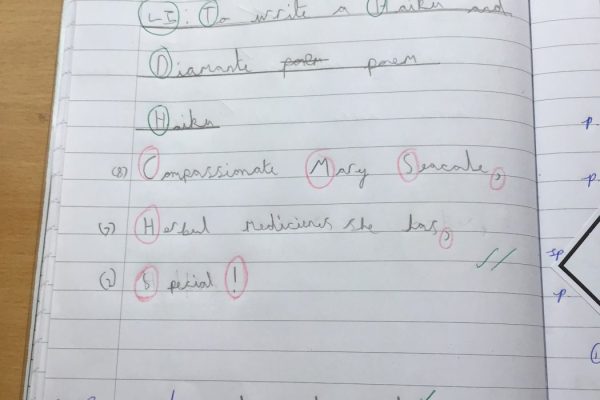 LI: To write a Haiku and
Diamante poem poem
Haiku
(8) Compassionate Mary Seacole,
(7) Herbal medicienes she has,
(2) Special!
p
p
sp
p